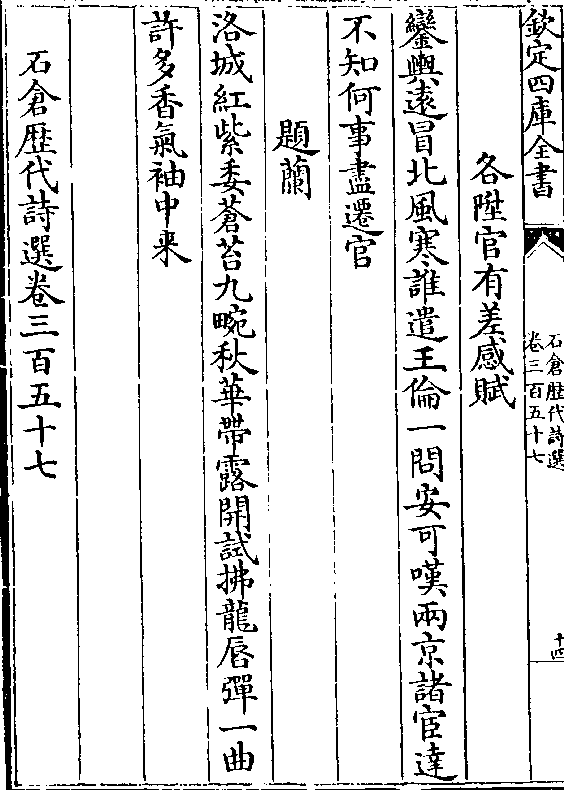 欽定四庫全書
石倉歴代詩選
卷三百五十七
十四
各陞官有差感賦
鑾輿遠冒北風寒誰遣王倫一問安可嘆兩京諸宦達
不知何事盡遷官
題蘭
洛城紅紫委蒼苔九畹秋華帶露開試拂龍唇彈一曲
許多香氣袖中来
石倉歴代詩選卷三百五十七